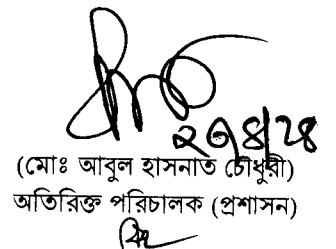 ২৩/৪/২৪
(মোঃ আবুল হাসনাত চৌধুরী)
অতিরিক্ত পরিচালক (প্রশাসন)